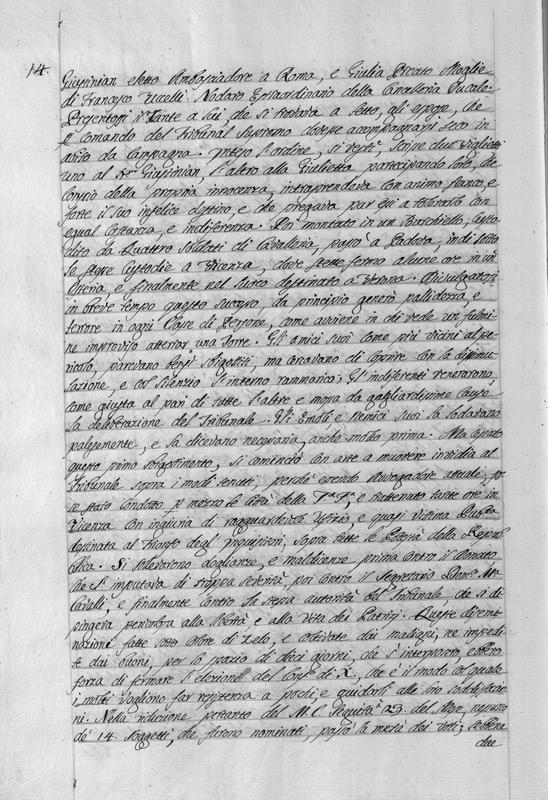 14.
Giustinian eletto Ambasciadore a Roma, e Giulia Moglie
di Francesco Uccelli Nodaro Estraordinario della Cancelleria Ducale.
Presentossi il Fante a lui che si trovava a letto, gli espose, che
p comando del Tribunal Supremo dovesse accompagnarsi seco in
abito da Campagna. Inteso l'ordine, si vestì, scrisse due Viglietti
uno al Giustinian, l'altro alla Giulietta, partecipando loro, che
conscio della propria innocenza, intraprendeva con animo franco, e
forte il suo infelice destino, e che pregava pur a tolerarlo con
egual costanza, e indifferenza. Poi montato in un Burchiello, custo
dito da Quattro Soldati di Cavalleria, passò a Padova, indi sotto
le stesse Custodie a Vicenza, dove stette fermo alcune ore in un'
Osteria, e finalmente nel luoco destinato a Verona. Divulgatosi
in breve tempo questo successo, da principio generò pallidezza, e
terrore in ogni Classe di Persone, come avviene in chi vede un fulmi
ne improviso atterrar una Torre. Gli amici suoi come più vicini al pe
ricolo, parevano bensì sbigottiti, ma cercavano di coprire con la dissimu
lazione, e col silenzio l'interno rammarico; Gl'indiferenti veneravano
come giusta al pari di tutte l'altre e mossa da gagliardissime Cause
la deliberazione del Tribunale. Gli Emoli e Nemici suoi la lodavano
palesemente, e la dicevano necessaria, anche molto prima. Ma cessato
questo primo sbigottimento, si cominciò con arte a muovere invidia al
Tribunale sopra i modi tenuti, perchè essendo Avvogadore attuale, fos
se stato condotto p mezzo le Città della T.a F.a, e trattenuto tante ore in
Vicenza con ingiuria di ragguardevole Ufizio, e quasi vittima
destinata al Trionfo degl'Inquisitori, sopra tutte le Potestà della Repub
blica. Si tolerarono doglianze, e maldicenze prima contro il Donato
che s'imputava di troppa severità, poi contro il Segretario
Cavalli, e finalmente contro la stessa autorità del Tribunale che si di
pingeva pericolosa alla libertà e alla Vita dei Patrizj. Queste disemi
nazioni fatte sotto colore di zelo, e coltivate dai maligni, ne impedi
te dai buoni, per lo spazio di dieci giorni, che s'interposero, ebbero
forza di fermare l'elezione del Cons.o di X., che è il modo col quale
i molti vogliono far resistenza a pochi e guidarli alle loro soddisfazio
ni. Nella riduzione pertanto del M. C. seguita a 23 del Mese, nessuno
de' 14. Soggetti, che furono nominati, passò la metà dei Voti; sebbene
due